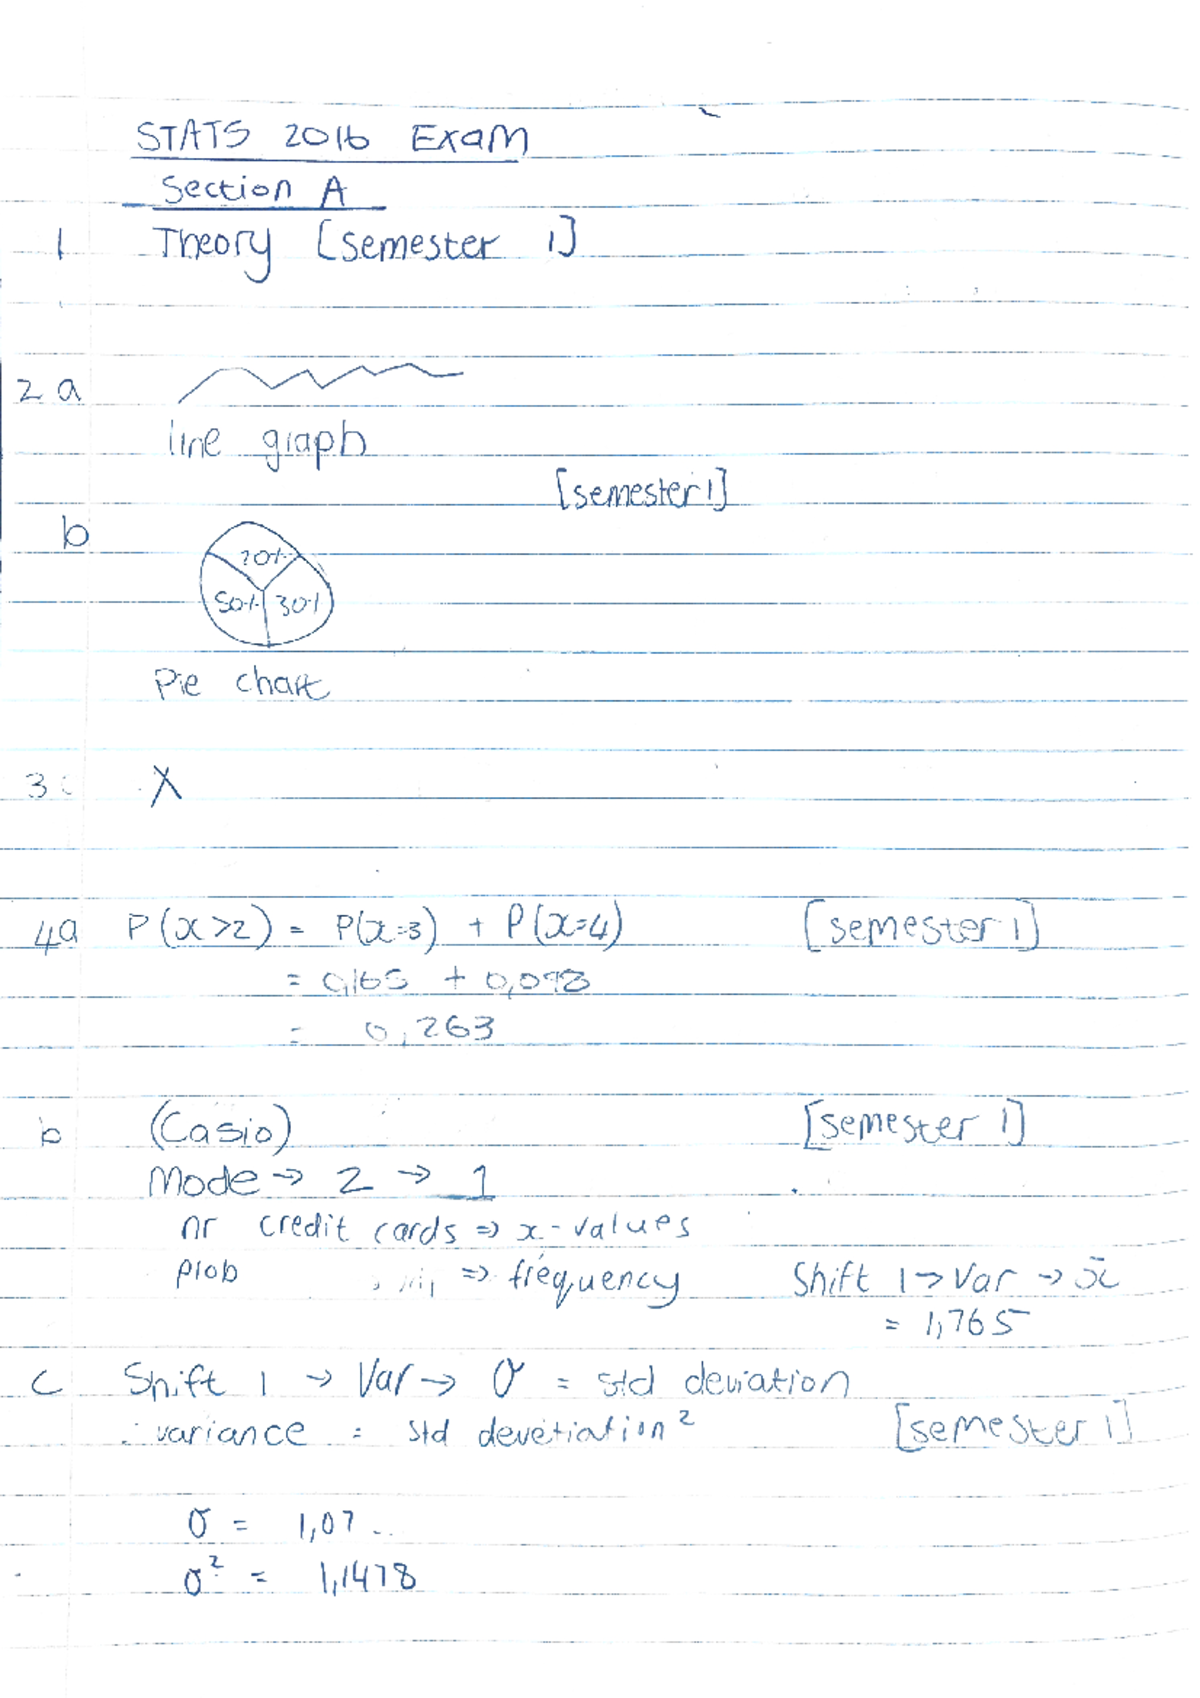 STATS 2016 Exam
Section A
1 Theory [semester 1]
2 a
line graph
[semester 1]
b
20%
50% 30%
Pie chart
3 X
4a P(x>2) = P(x=3) + P(x=4) [semester 1]
= 0,165 + 0,098
= 0,263
b (Casio) [semester 1]
Mode → 2 → 1
nr credit cards ⇒ x-values
prob ⇒ frequency Shift 1 → Var → x̄
= 1,765
c Shift 1 → Var → σ = std deviation
∴ variance = std devetiation² [semester 1]
σ = 1,07..
σ² = 1,1478